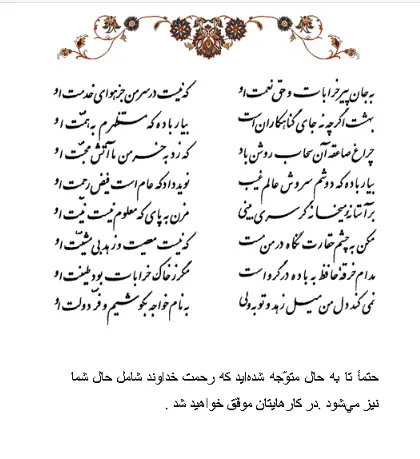 به جان پیر خرابات و حق نعمت او که نیست در سر من جز هوای خدمت او
بهشت اگر چه نه جای گناهکاران است بیار باده که مستظهرم به همّت او
چراغ صاعقه آن سحاب روشن باد که زد به خرمن ما آتش محبّت او
بیار باده که دوشم سروش عالم غیب نوید داد که عام است فیض رحمت او
بر آستانه میخانه گر سری بینی مزن به پای که معلوم نیست نیّت او
مکن به چشم حقارت نگاه در من مست که نیست معصیت و زهد بی مشیّت او
مدام خرقه حافظ به باده در گرو است مگر ز خاک خرابات بود طینت او
نمی کند دل من میل زهد و توبه ولی به نام خواجه بکوشیم و فرّ دولت او
حتمأ تا به حال متوّجه شده‌اید که رحمت خداوند شامل حال شما
نیز می‌شود .در کارهایتان موفّق خواهید شد .